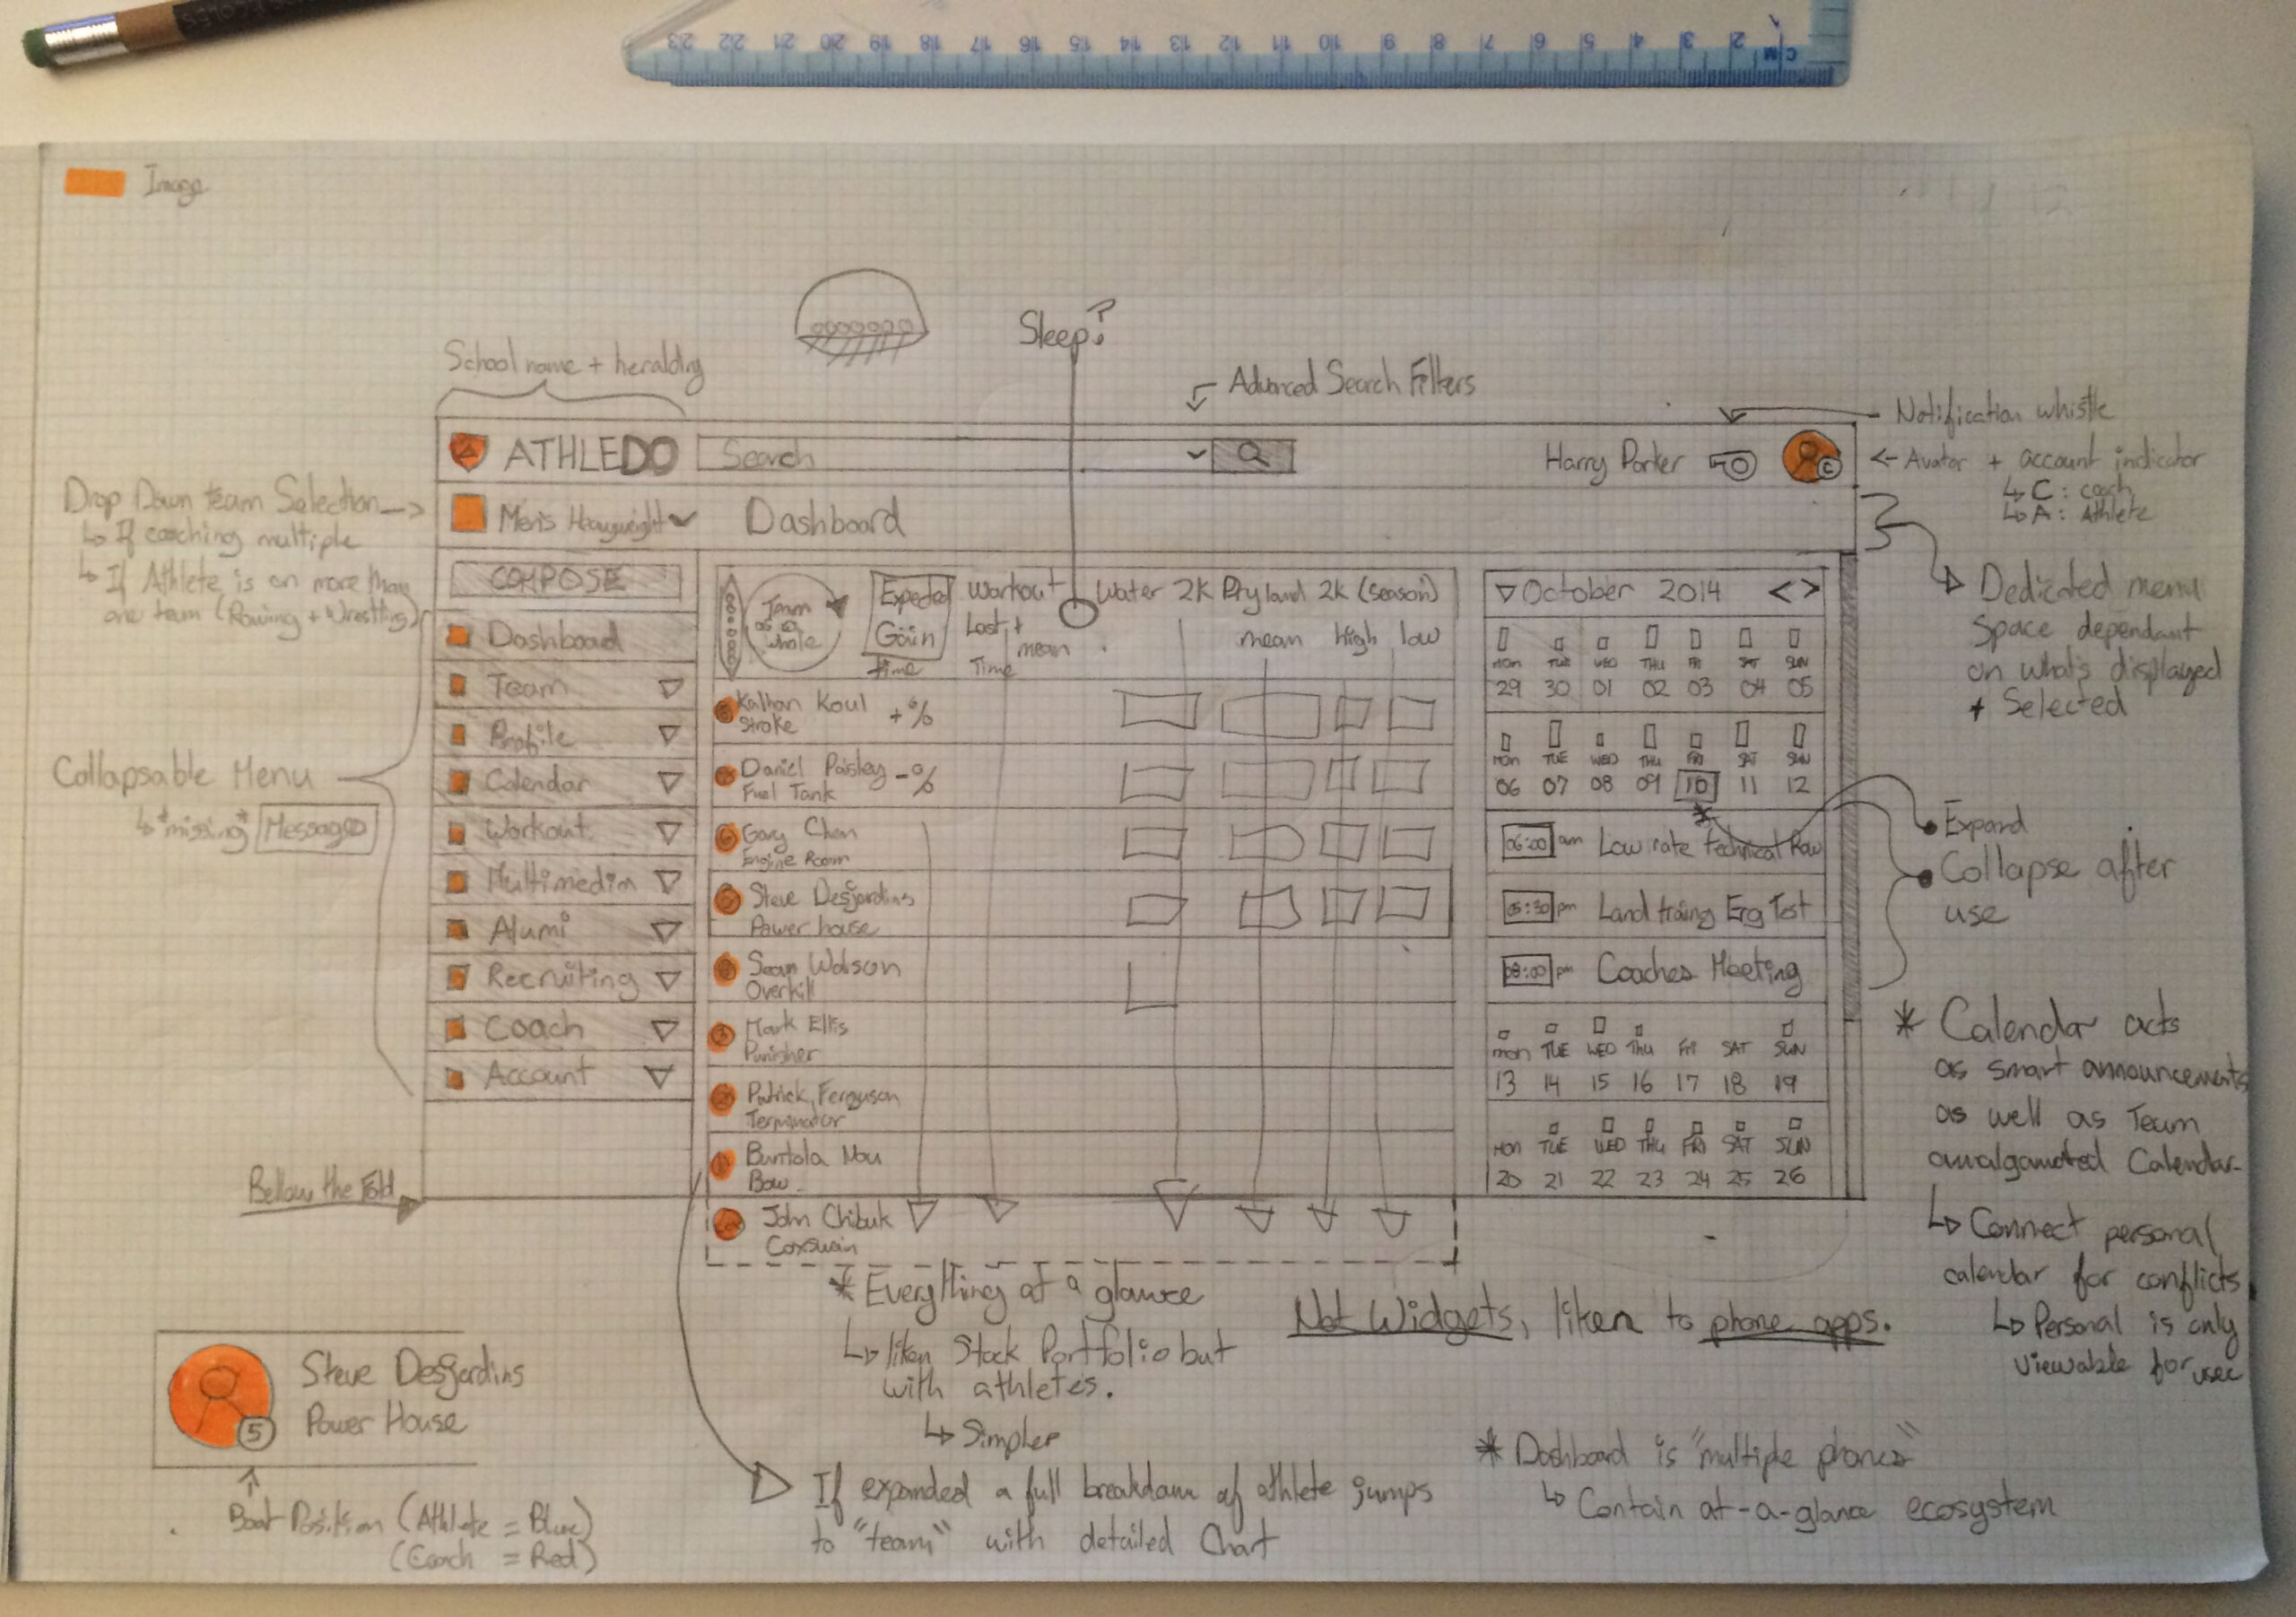 23 22 21 20 19 18 17 16 15 14 13 12 11 10 9 8 7 6 5 4 3 2 1
CM
Image
Sleep?
School name + heraldry
Advanced Search Filters
Notification whistle
ATHLEDO
Search
Harry Parker
C
<- Avatar + account indicator
C: coach
A: Athlete
Drop Down team Selection ->
If coaching multiple
If Athlete is on more than
one team (Rowing + Wrestling)
Men's Heavyweight
Dashboard
Dedicated menu
Space dependant
on what's displayed
+ Selected
COMPOSE
Dashboard
Team
Profile
Calendar
Workout
Multimedia
Alumi
Recruiting
Coach
Account
Collapsable Menu
*missing* Messages
Bellow the Fold
Team
as a
whole
Expected
Gain
time
Workout
Last +
mean
Time
Water 2K
Dryland 2K (season)
mean high low
Kalhan Koul +%
Stroke
Daniel Paisley -%
Fuel Tank
Gary Chen
Engine Room
Steve Desjardins
Power house
Sean Watson
Overkill
Mark Ellis
Punisher
Patrick Ferguson
Terminator
Bow
John Chibuk
Coxswain
October 2014 < >
MON TUE WED THU FRI SAT SUN
29 30 01 02 03 04 05
MON TUE WED THU FRI SAT SUN
06 07 08 09 10 11 12
*
06:00 am Low rate technical Row
05:30 pm Land traing Erg Test
08:00 pm Coaches Meeting
mon TUE WED THU Fri SAT SUN
13 14 15 16 17 18 19
MON TUE WED THU FRI SAT SUN
20 21 22 23 24 25 26
Expand
Collapse after
use
* Calendar acts
as smart announcements
as well as Team
amalgamated Calendar
Connect personal
calendar for conflicts
Personal is only
viewable for user
* Everything at a glance
liken Stock Portfolio but
with athletes.
Simpler
Not Widgets, liken to phone apps.
If expanded a full breakdown of athlete jumps
to "team" with detailed Chart
* Dashboard is "multiple phones"
Contain at-a-glance ecosystem
Steve Desjardins
Power House
5
Boat Position (Athlete = Blue)
(Coach = Red)